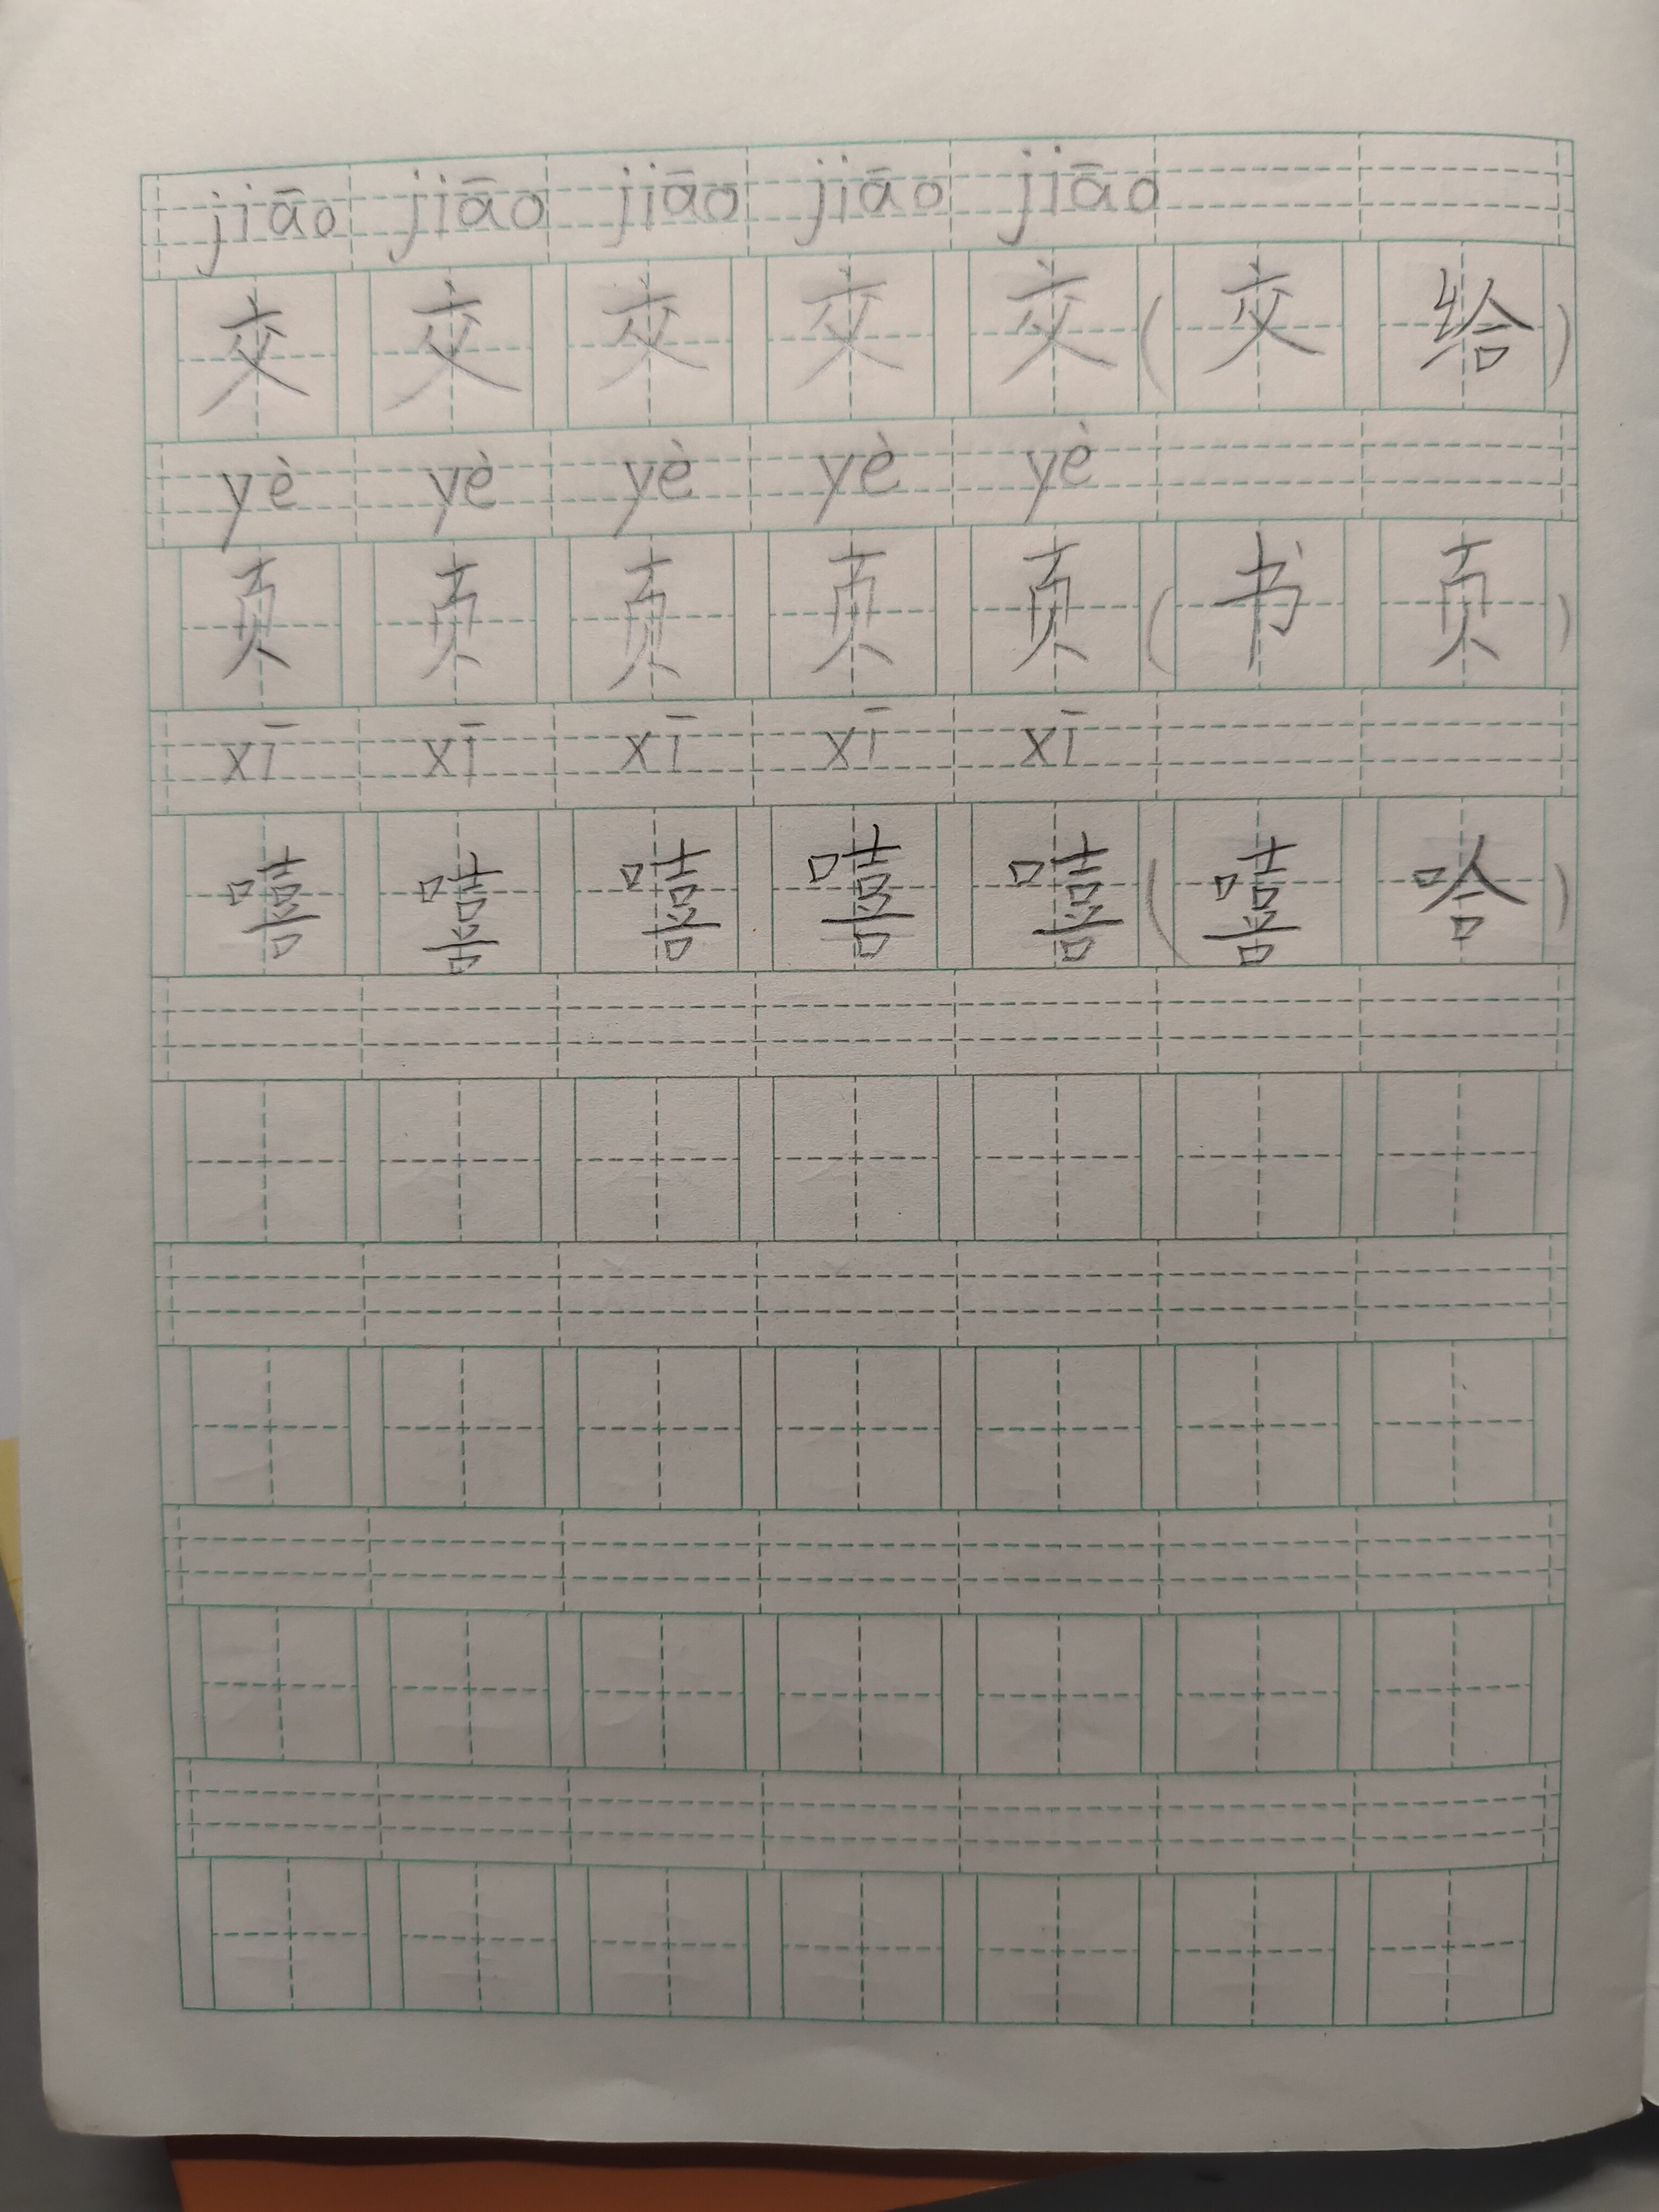 jiāo jiāo jiāo jiāo jiāo
交 交 交 交 交 ( 交 给 )
yè yè yè yè yè
页 页 页 页 页 ( 书 页 )
xī xī xī xī xī
嘻 嘻 嘻 嘻 嘻 ( 嘻 哈 )